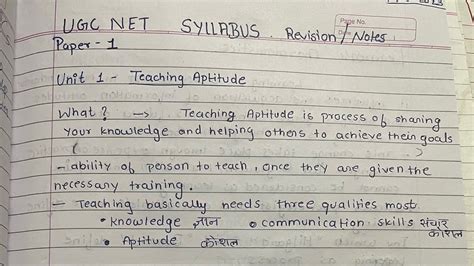 UGC NET SYLLABUS Revision / Notes
Page No.
Paper - 1
Unit 1 - Teaching Aptitude
What? → Teaching Aptitude is process of sharing
your knowledge and helping others to achieve their goals
( )
- ability of person to teach, once they are given the
necessary training.
- Teaching basically needs three qualities most
• knowledge ज्ञान • communication skills संचार
कौशल
• Aptitude कोशल